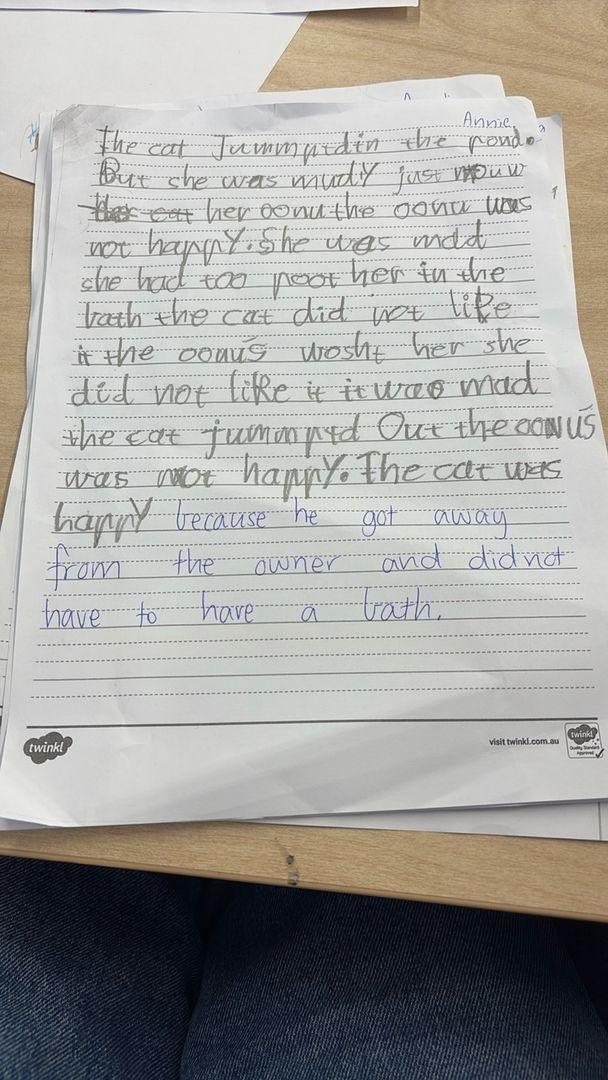 Annie
The cat Jummptdin the pond.
But she was mudy just nouw
the cat her oonu the oonu was
not happy. She was mad
she had too poot her in the
bath the cat did not like
it the oonus wosht her she
did not like it it was mad
the cat jummptd Out the oonus
was not happy. The cat was
happy because he got away
from the owner and did not
have to have a bath.
twinkl
visit twinkl.com.au
twinkl
Quality Standard
Approved